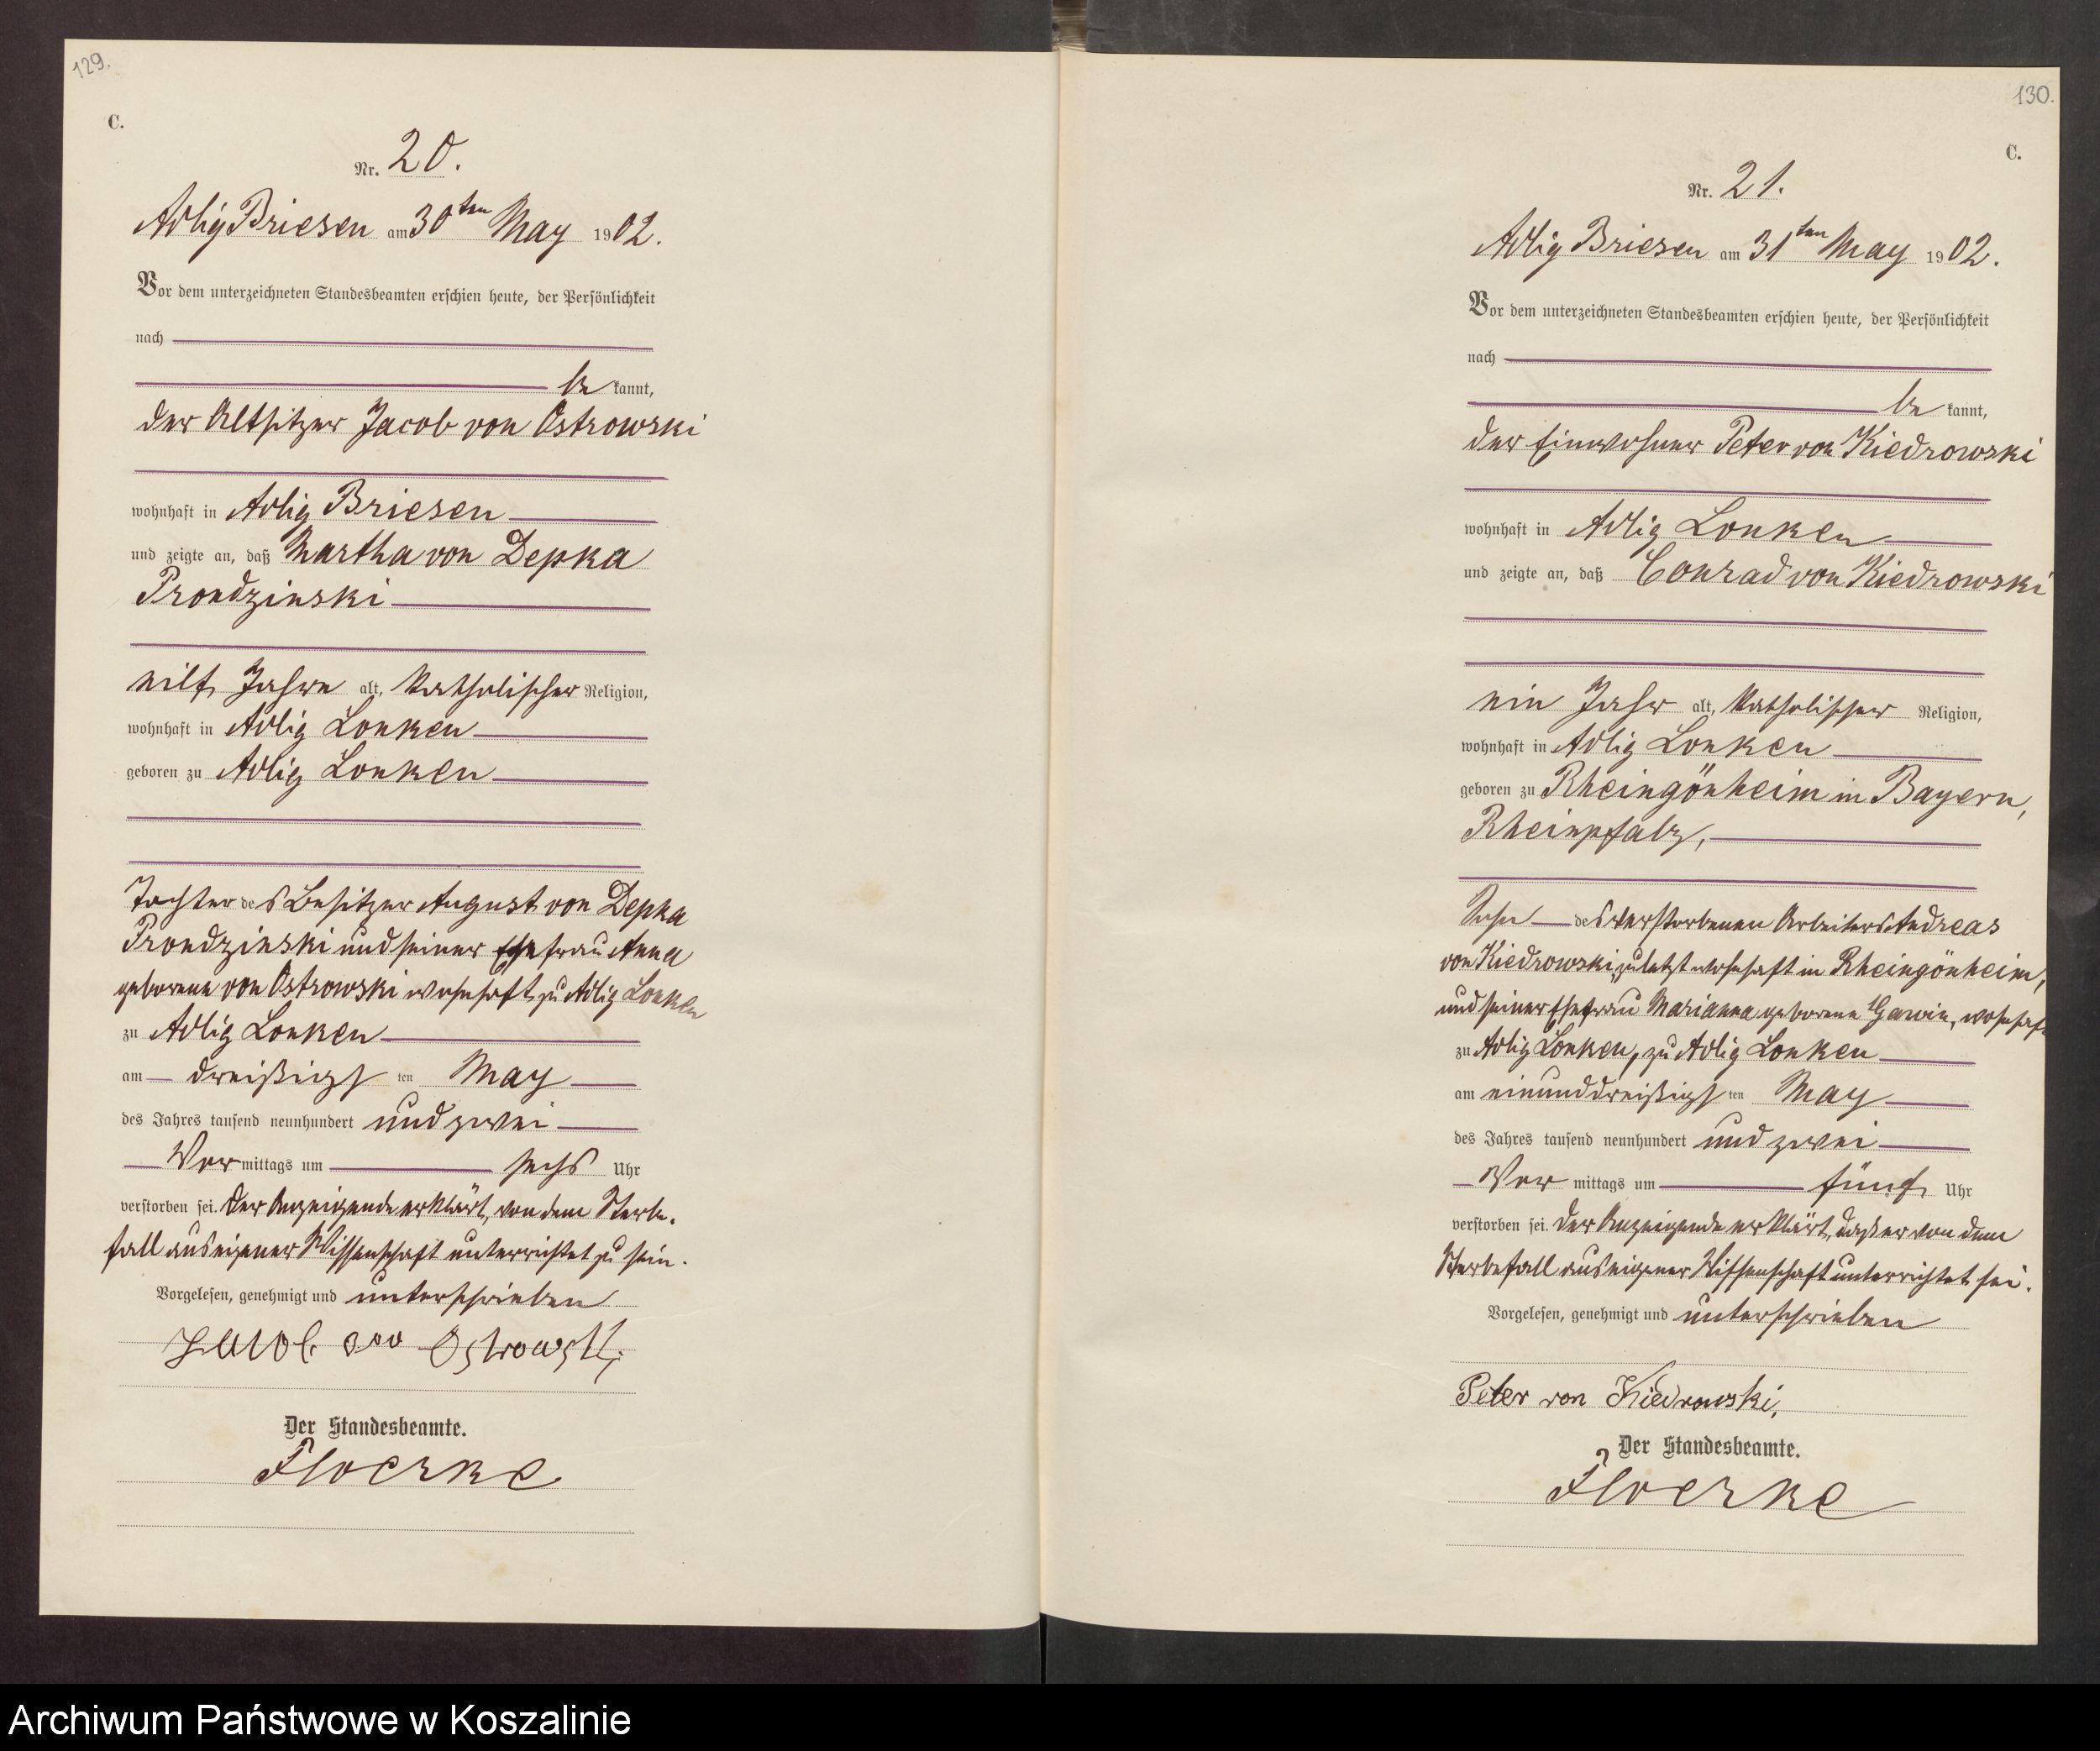 129.
C.
Nr. 20.
Adlig Briesen am 30ten May 1902.
Vor dem unterzeichneten Standesbeamten erschien heute, der Persönlichkeit
nach
be kannt,
der Altsitzer Jacob von Ostrowski
wohnhaft in Adlig Briesen
und zeigte an, daß Martha von Depka
Prondzinski
eilf Jahre alt, katholischer Religion,
wohnhaft in Adlig Lonken
geboren zu Adlig Lonken
Tochter des Besitzer August von Depka
Prondzinski und seiner Ehefrau Anna
geborene von Ostrowski wohnhaft zu Adlig Lonken
zu Adlig Lonken
am dreißigsten May
des Jahres tausend neunhundert und zwei
Vormittags um sechs Uhr
verstorben sei. Der Anzeigende erklärt, von dem Sterbe-
fall aus eigener Wissenschaft unterrichtet zu sein.
Vorgelesen, genehmigt und unterschrieben
Jacob von Ostrowski
Der Standesbeamte.
Floerke
130.
C.
Nr. 21.
Adlig Briesen am 31ten May 1902.
Vor dem unterzeichneten Standesbeamten erschien heute, der Persönlichkeit
nach
be kannt,
der Einwohner Peter von Kiedrowski
wohnhaft in Adlig Lonken
und zeigte an, daß Conrad von Kiedrowski
ein Jahr alt, katholischer Religion,
wohnhaft in Adlig Lonken
geboren zu Rheingönheim in Bayern,
Rheinpfalz,
Sohn des verstorbenen Arbeiters Andreas
von Kiedrowski, zuletzt wohnhaft in Rheingönheim,
und seiner Ehefrau Marianna geborene Gawin, wohnhaft
zu Adlig Lonken, zu Adlig Lonken
am einunddreißigsten May
des Jahres tausend neunhundert und zwei
Vor mittags um fünf Uhr
verstorben sei. Der Anzeigende erklärt, daß er von dem
Sterbefall aus eigener Wissenschaft unterrichtet sei.
Vorgelesen, genehmigt und unterschrieben
Peter von Kiedrowski,
Der Standesbeamte.
Floerke
Archiwum Państwowe w Koszalinie